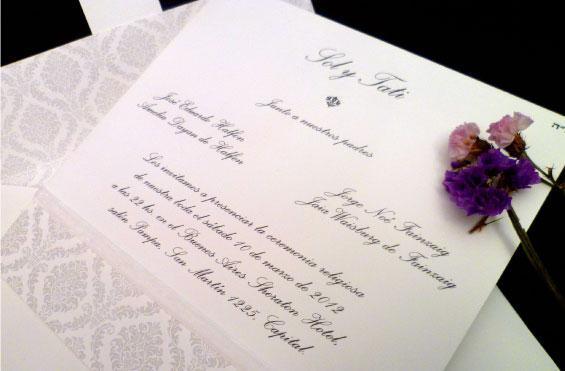 Sol y Tati
Junto a nuestros padres
José Eduardo Helfon
Amelia Dayan de Helfon
Jorge Noé Fainzaig
Joia Waisburg de Fainzaig
Los invitamos a presenciar la ceremonia religiosa
de nuestra boda el sábado 10 de marzo de 2012
a las 22 hs. en el Buenos Aires Sheraton Hotel,
salón Pampa, San Martín 1225, Capital.